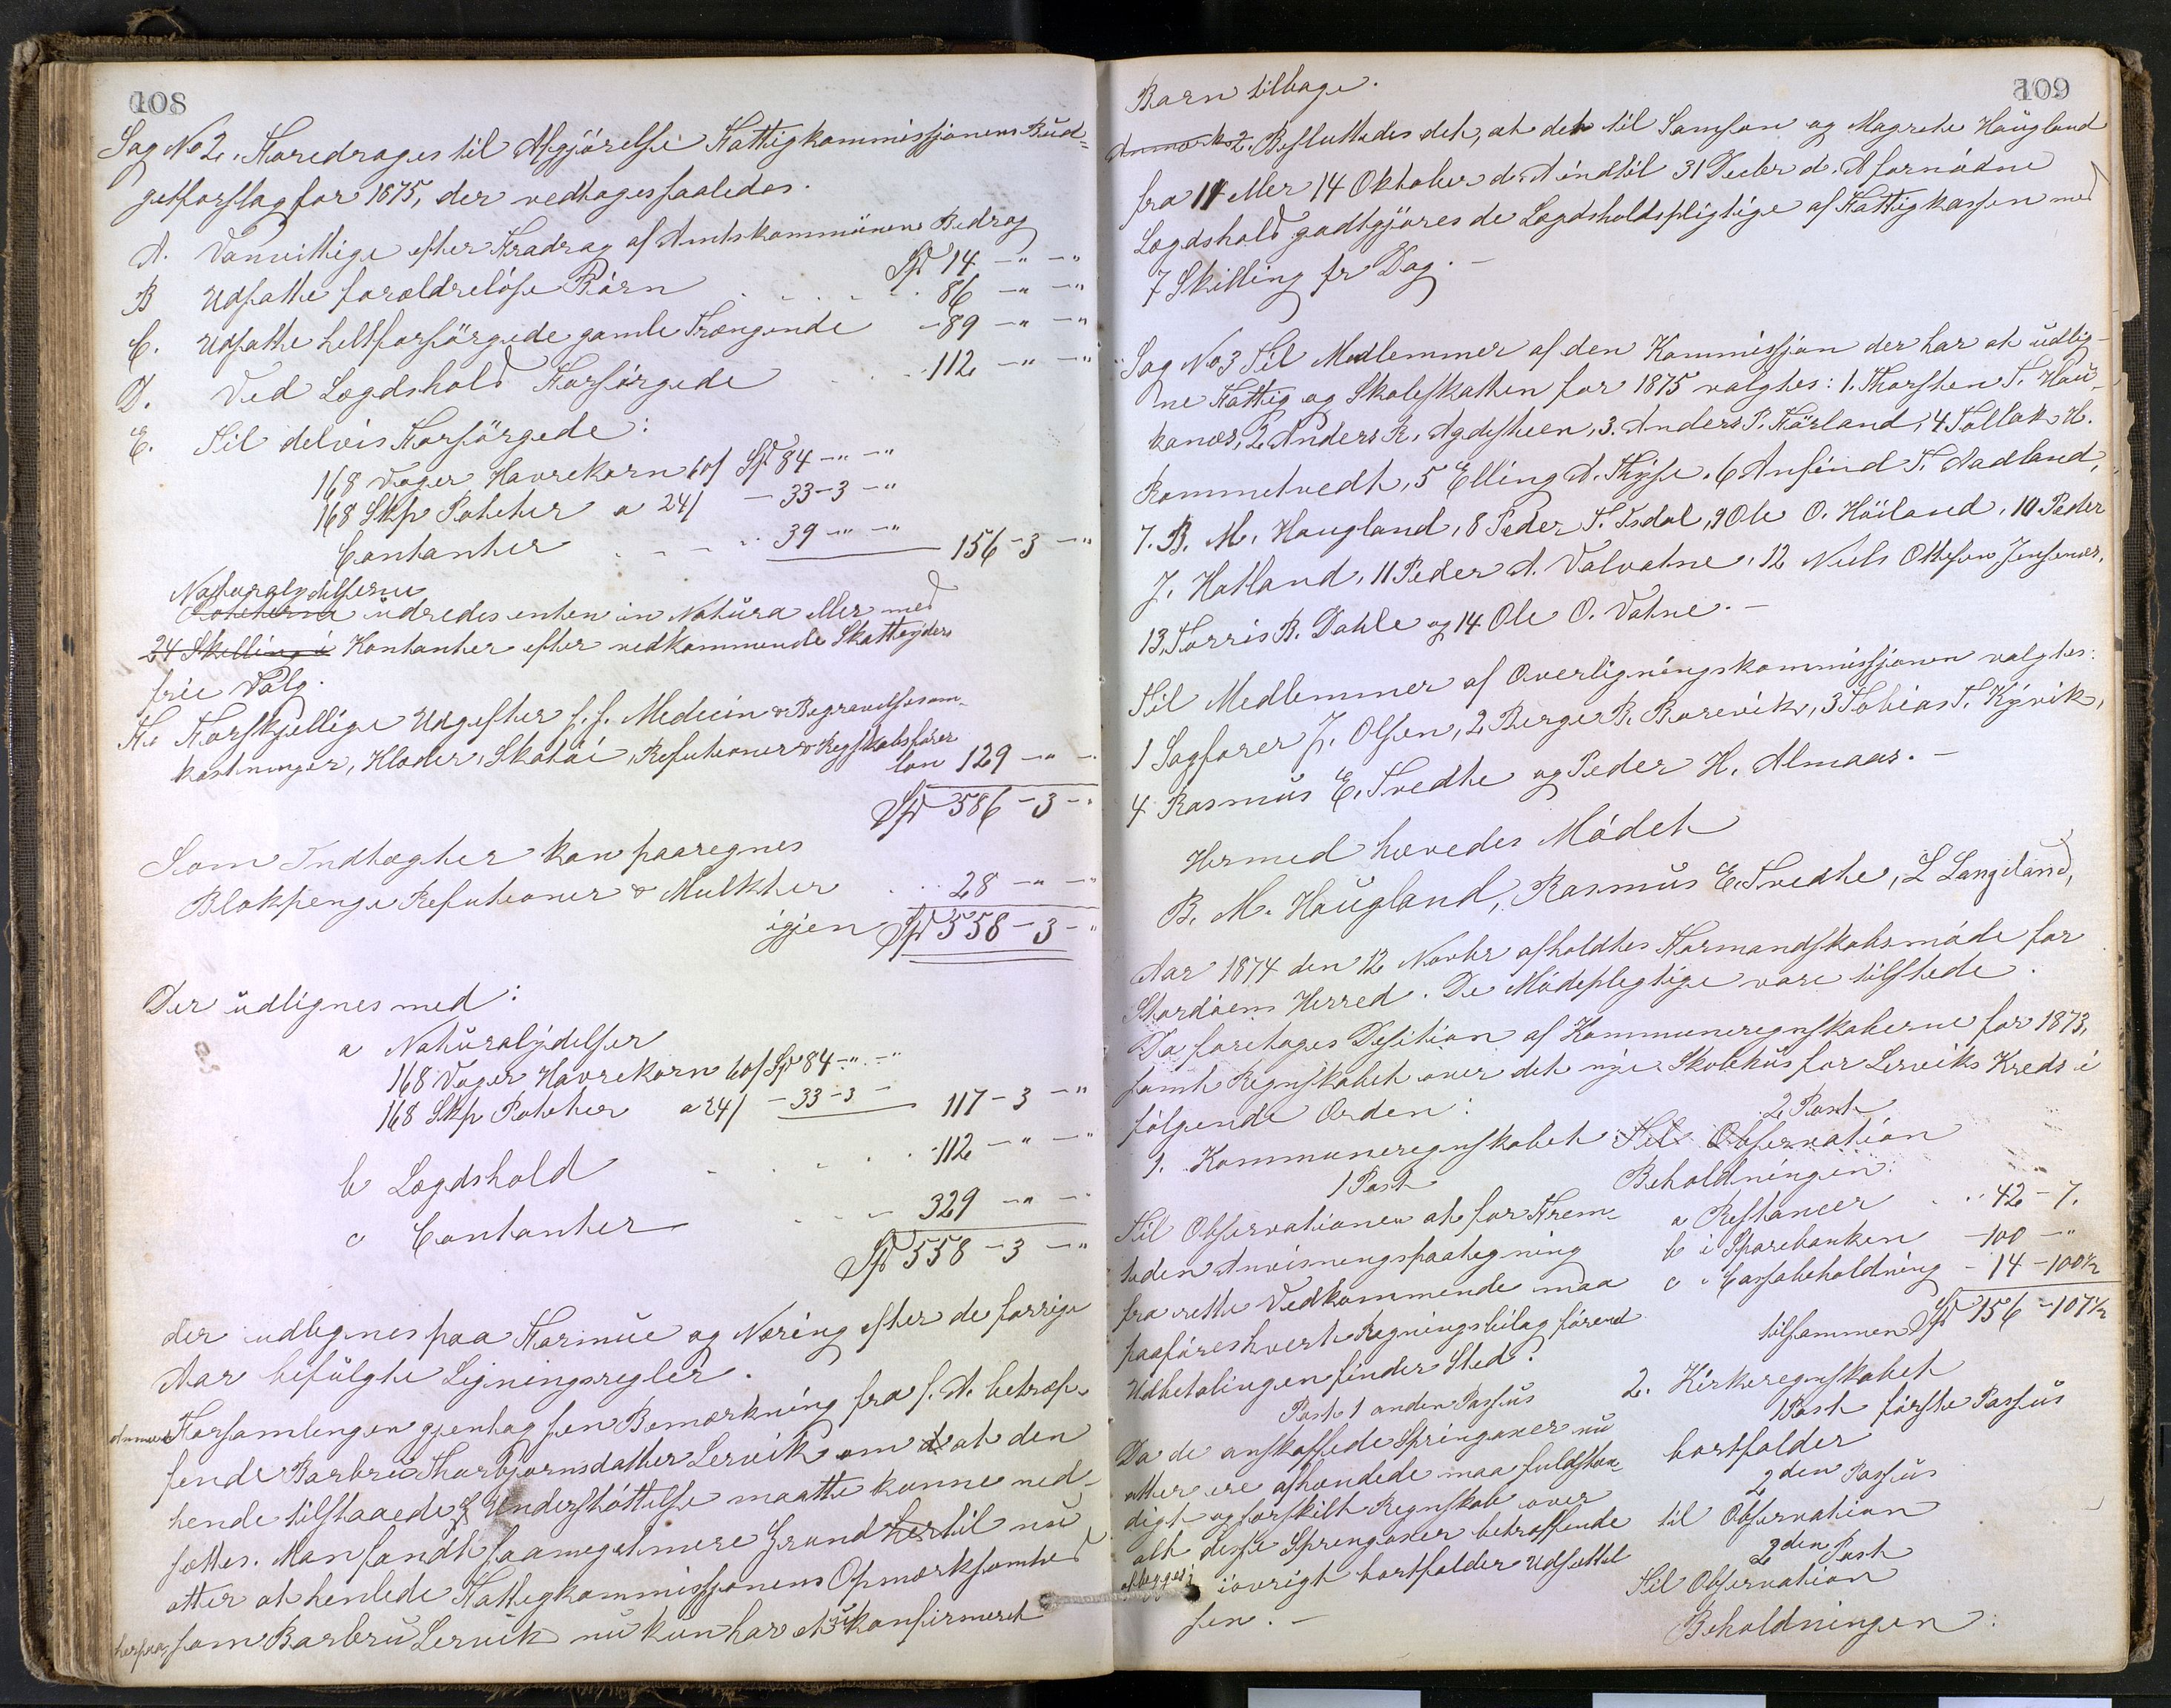 108
Sag No 2. Foredrages til Afgjörelse Fattigkommissjonens Bud-
getforslag for 1875, der vedtoges saaledes.
A. Vanvittige efter Fradrag af Amtskommunens Bedrag
Spd 14 - " - "
B Udsatte forældrelöse Börn . . . . 86 - " - "
C. Udsatte heltforsörgede gamle Trængende - 89 - " - "
D. Ved Lægdshold Forsörgede . . . 112 - " - "
E. Til delvis Forsörgede:
168 Voger Havrekorn 60/ Spd 84 - " - "
168 Skp Poteter a 24/ - 33 - 3 - "
Contanter . . . . 39 - " - " 156 - 3 - "
Naturalydelserne
Poteterne udredes enten in Natura eller med
24 Skilling i Kontanter efter vedkommende Skatteyders
frie Valg.
F. Forskjellige Udgifter s. s. Medicin & Begravelsesom-
kostninger, Klæder, Skotöi, Refutioner & Regskabsfører
løn 129 - " - "
Spd 586 - 3 - "
Som Indtægter kan paaregnes
Blokpenge Refutioner & Mulkter . . 28 - " - "
igjen Spd 558 - 3 - "
Der udlignes med:
a Naturalydelser
168 Voger Havrekorn 60/ Spd 84 - " - "
168 Skp Poteter a 24/ - 33 - 3 - 117 - 3 - "
b Lægdshold . . . . . 112 - " - "
c Contanter . . . 329 - " - "
Spd 558 - 3 - "
der udlignes paa Formue og Næring efter de forrige
Aar befulgte Ligningsregler.
Forsamlingen gjentog sin Bemærkning fra f. A. betræf-
fende Barbru Thorbjørnsdatter Lervik om at den
hende tilstaaede Understöttelse maatte kunne ned-
sættes. Man fandt saameget mere Grund hertil nu
atter at henlede Fattigkommissjonens Opmærksomhed
herpaa, som Barbru Lervik nu kun har et ukonfirmeret
109
Barn tilbage.
Anmærk 2. Besluttedes det, at det til Samson og Magrete Haugland
fra 11 eller 14 Oktober d. A indtil 31 Decbr d. A fornödne
Lægdshold godtgjöres de Lægdsholdspligtige af Fattigkassen med
7 Skilling pr Dag. -
Sag No 3 Til Medlemmer af den Kommissjon der har at udlig-
ne Fattig og Skoleskatten for 1875 valgtes: 1. Thorsten T. Hau-
kanæs, 2. Anders R. Agdesteen, 3. Anders P. Förland, 4 Tollak H.
Rommetvedt, 5 Elling A. Thyse, 6 Anfind T. Aadland,
7. B. M. Haugland, 8 Peder T. Isdal, 9 Ole O. Höiland, 10. Peder
J. Hatland, 11 Peder A. Valvatne, 12 Niels Ottesen Jensenæs,
13. Torris B. Dahle og 14 Ole O. Vatne. -
Til Medlemmer af Overligningskommissjonen valgtes:
1 Sagfører J. Olsen, 2. Berge B. Borevik, 3 Tobias T. Kyvik,
4 Rasmus E. Tvedte og Peder H. Almaas. -
Hermed hævedes Mödet
B. M. Haugland, Rasmus E. Tvedte, L Langeland,
Aar 1874 den 12 Novbr afholdtes Formandskabsmöde for
Stordöens Herred. De Mödepligtige vare tilstede.
Da foretoges Desition af Kommuneregnskaberne for 1873,
samt Regnskabet over det nye Skolehus for Lerviks Kreds i
fölgende Orden:
1. Kommuneregnskabet
1 Post
Til Observationen at for Frem-
tiden Anvisningspaategning
fra rette Vedkommende maa
paaföres hvert Regningsbilag förend
Udbetalingen finder Sted.
Post 1 anden Passus
Da de anskaffede Springoxer nu
atter ere afhændede maa fuldstæn-
digt og forskilt Regnskab over
alt disse Springoxer betræffende
aflægges; iövrigt bortfalder Udsættel
sen. -
2. Post
Til Observation
Beholdningen:
a Restancer . . . 42 - 7.
b i Sparebanken - 100 - "
c " Cassabeholdning - 14 - 100½
tilsammen Spd 156 - 107½
2. Kirkeregnskabet
1 Post förste Passus
bortfalder
2den Passus
til Observation
2den Post
Til Observation
Beholdningen: